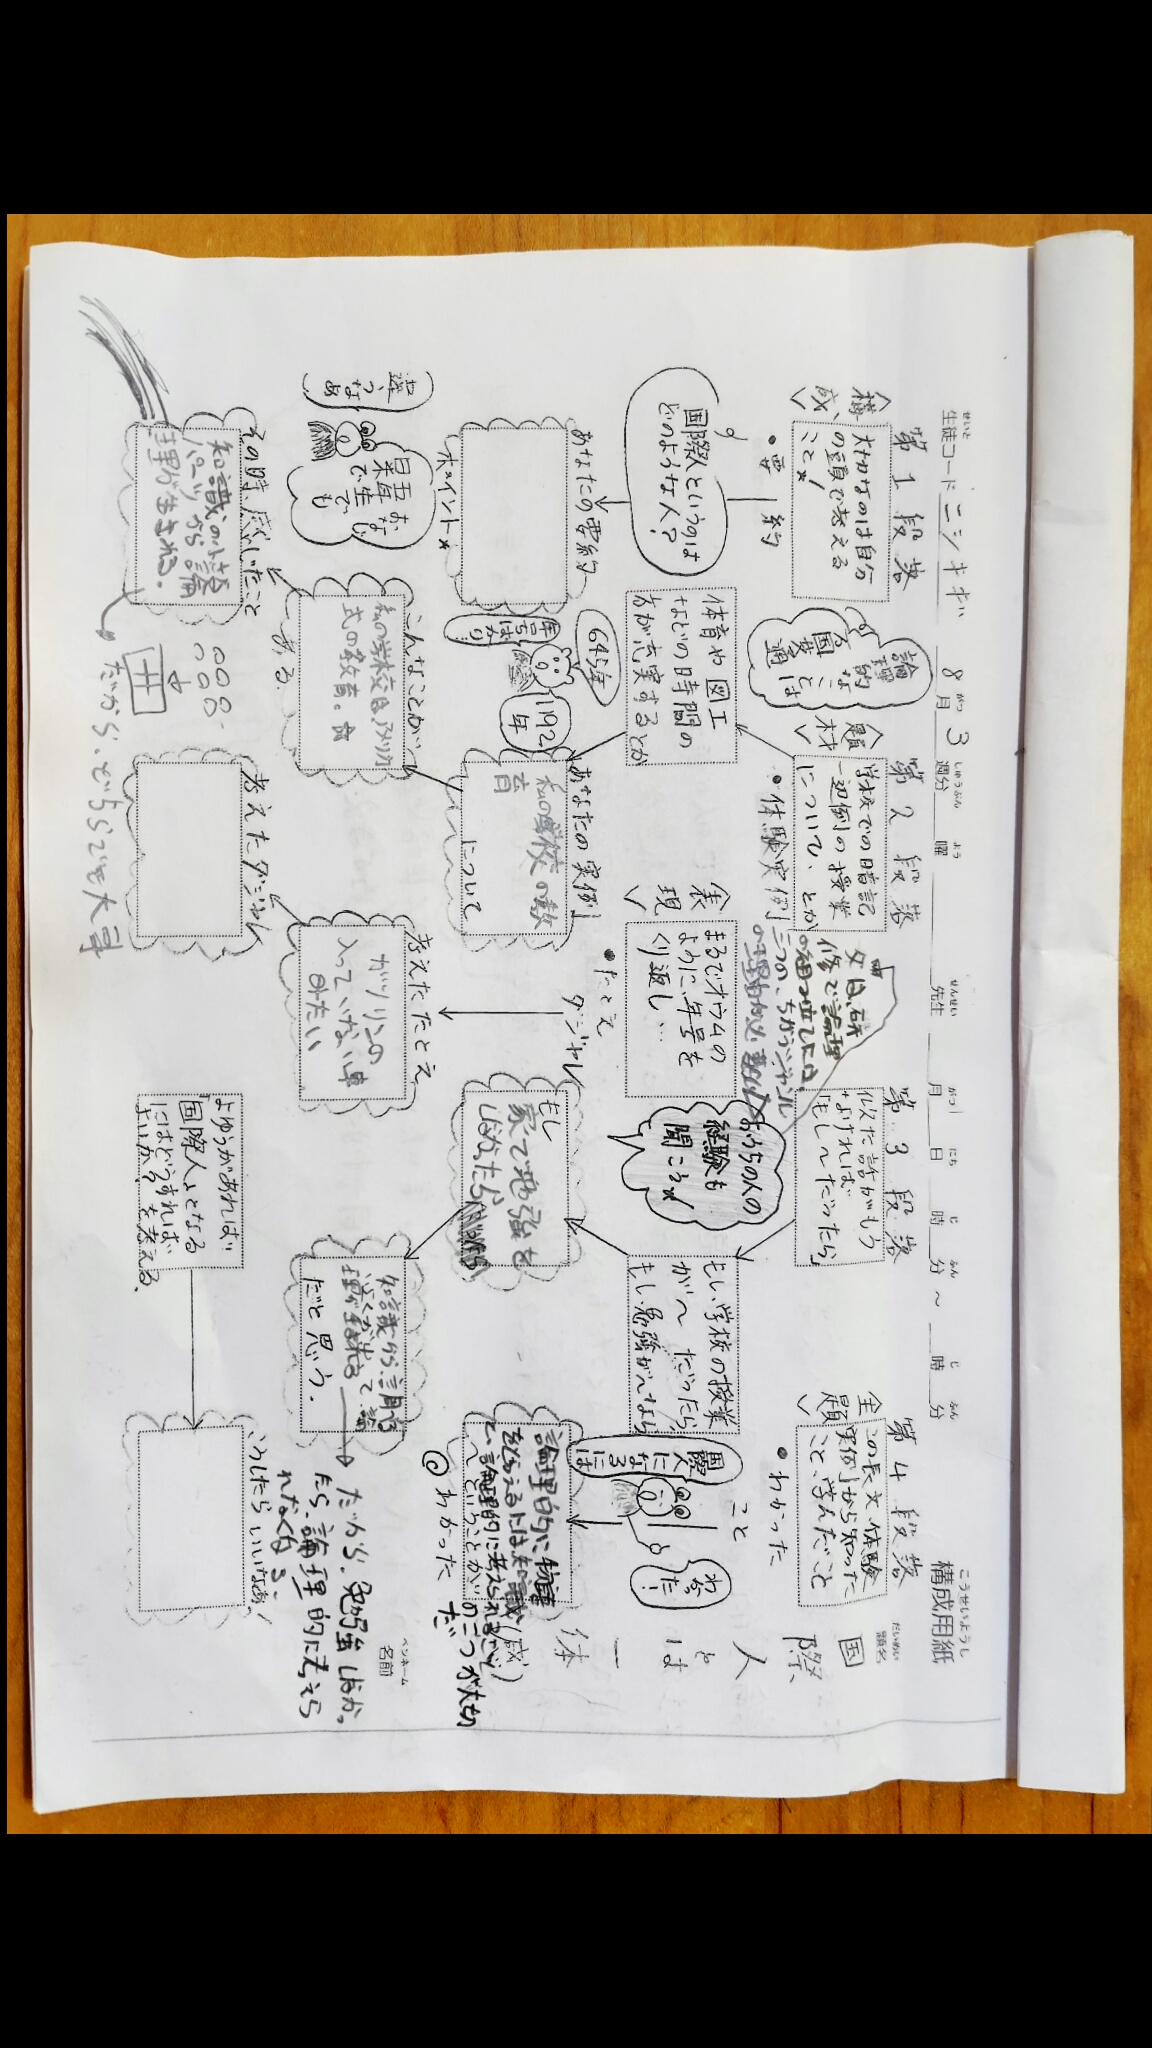 構成用紙
こうせいようし
生徒コード ニシキギ 8月3週分 曜 先生 月 日 時 分 ~ 時 分
せいと
がつ
しゅうぶん
よう
せんせい
がつ
にち
じ
ふん
じ
ふん
題名
だいめい
国際人とは一体
ペンネーム
名前
第1段落
<構成>
大切なのは自分
の頭で考える
こと★
・要約
国際人というのは
どのような人?
あなたの要約
ポイント★
論理的な
ことは
万国共通
第2段落
<題材>
学校での暗記
一辺倒の授業
について、とか
・体験実例
体育や図工
などの時間の
方が充実するとか
645年
1192年
年号ばかり
あなたの実例
私の学校の教
育
について
こんなことが
私の学校は、アメリカ
式の教育。
ある。
おなじ
でも
逆
なぁ
その時、感じたこと
知識の
パーツから論
理が生まれる。
だから、どちらでも大事
<表現>
まるでオウムの
ように、年号を
くり返し…
・たとえ
ダジャレ
考えたたとえ
ガソリンの
入っていない車
みたい
考えたダジャレ
父は、研
修で論理
の組み立てには、
三つの、ちがうジャンル
の理由が必要
第3段落
似た話がもう
なければ
「もし~だったら」
おうちの人の
経験も
聞こう★
もし、学校の授業
が~だったら
もし勉強が~なら
もし
家で勉強を
しなかったら
知識から
だと思う。
だから、勉強しなかっ
たら、論理的に考えら
れなくなる。
第4段落
<全題>
この長文、体験
実例から知った
こと、学んだこと
・わかった
こと
国際
人になる
には
わかった!
論理的に物事
を考えるには知識
と、論理的に考えられる
~ということがの二つが大切
だ
わかった
よゆうがあれば!!
「国際人」となる
にはどうすれば
よいか?を考える。
こうしたらいいなあ!